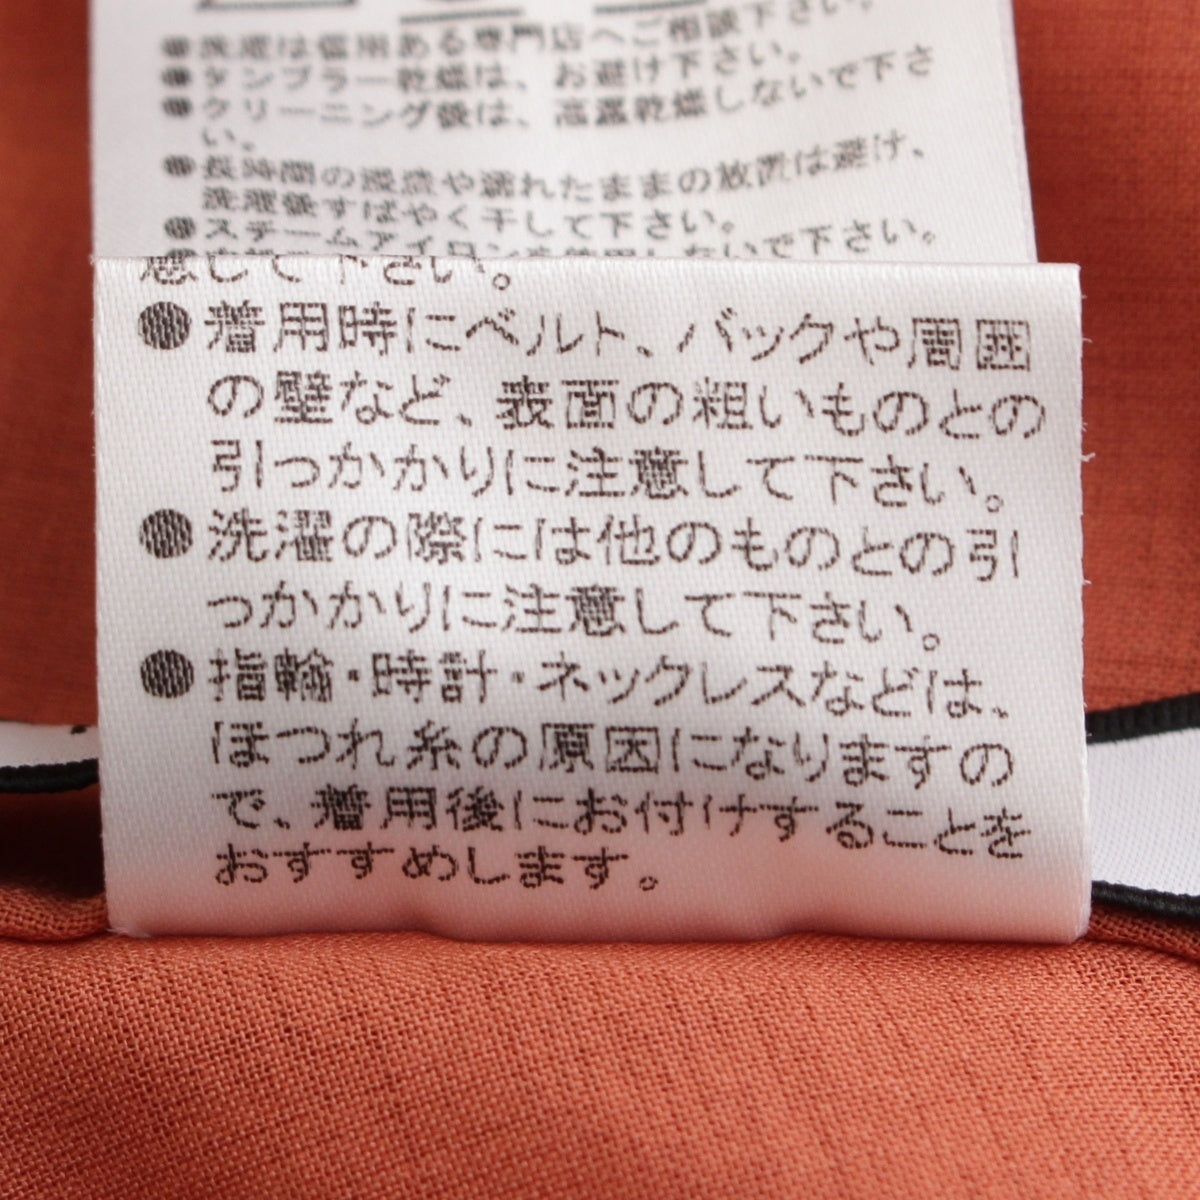 ●洗濯は信用ある専門店へご相談下さい。
●タンブラー乾燥は、お避け下さい。
●クリーニング後は、高温乾燥しないで下さ
い。
●長時間の浸漬や濡れたままの放置は避け、
洗濯後すばやく干して下さい。
●スチームアイロンを使用しないで下さい。
意して下さい。
●着用時にベルト、バックや周囲
の壁など、表面の粗いものとの
引っかかりに注意して下さい。
●洗濯の際には他のものとの引
っかかりに注意して下さい。
●指輪・時計・ネックレスなどは、
ほつれ糸の原因になりますの
で、着用後にお付けすることを
おすすめします。